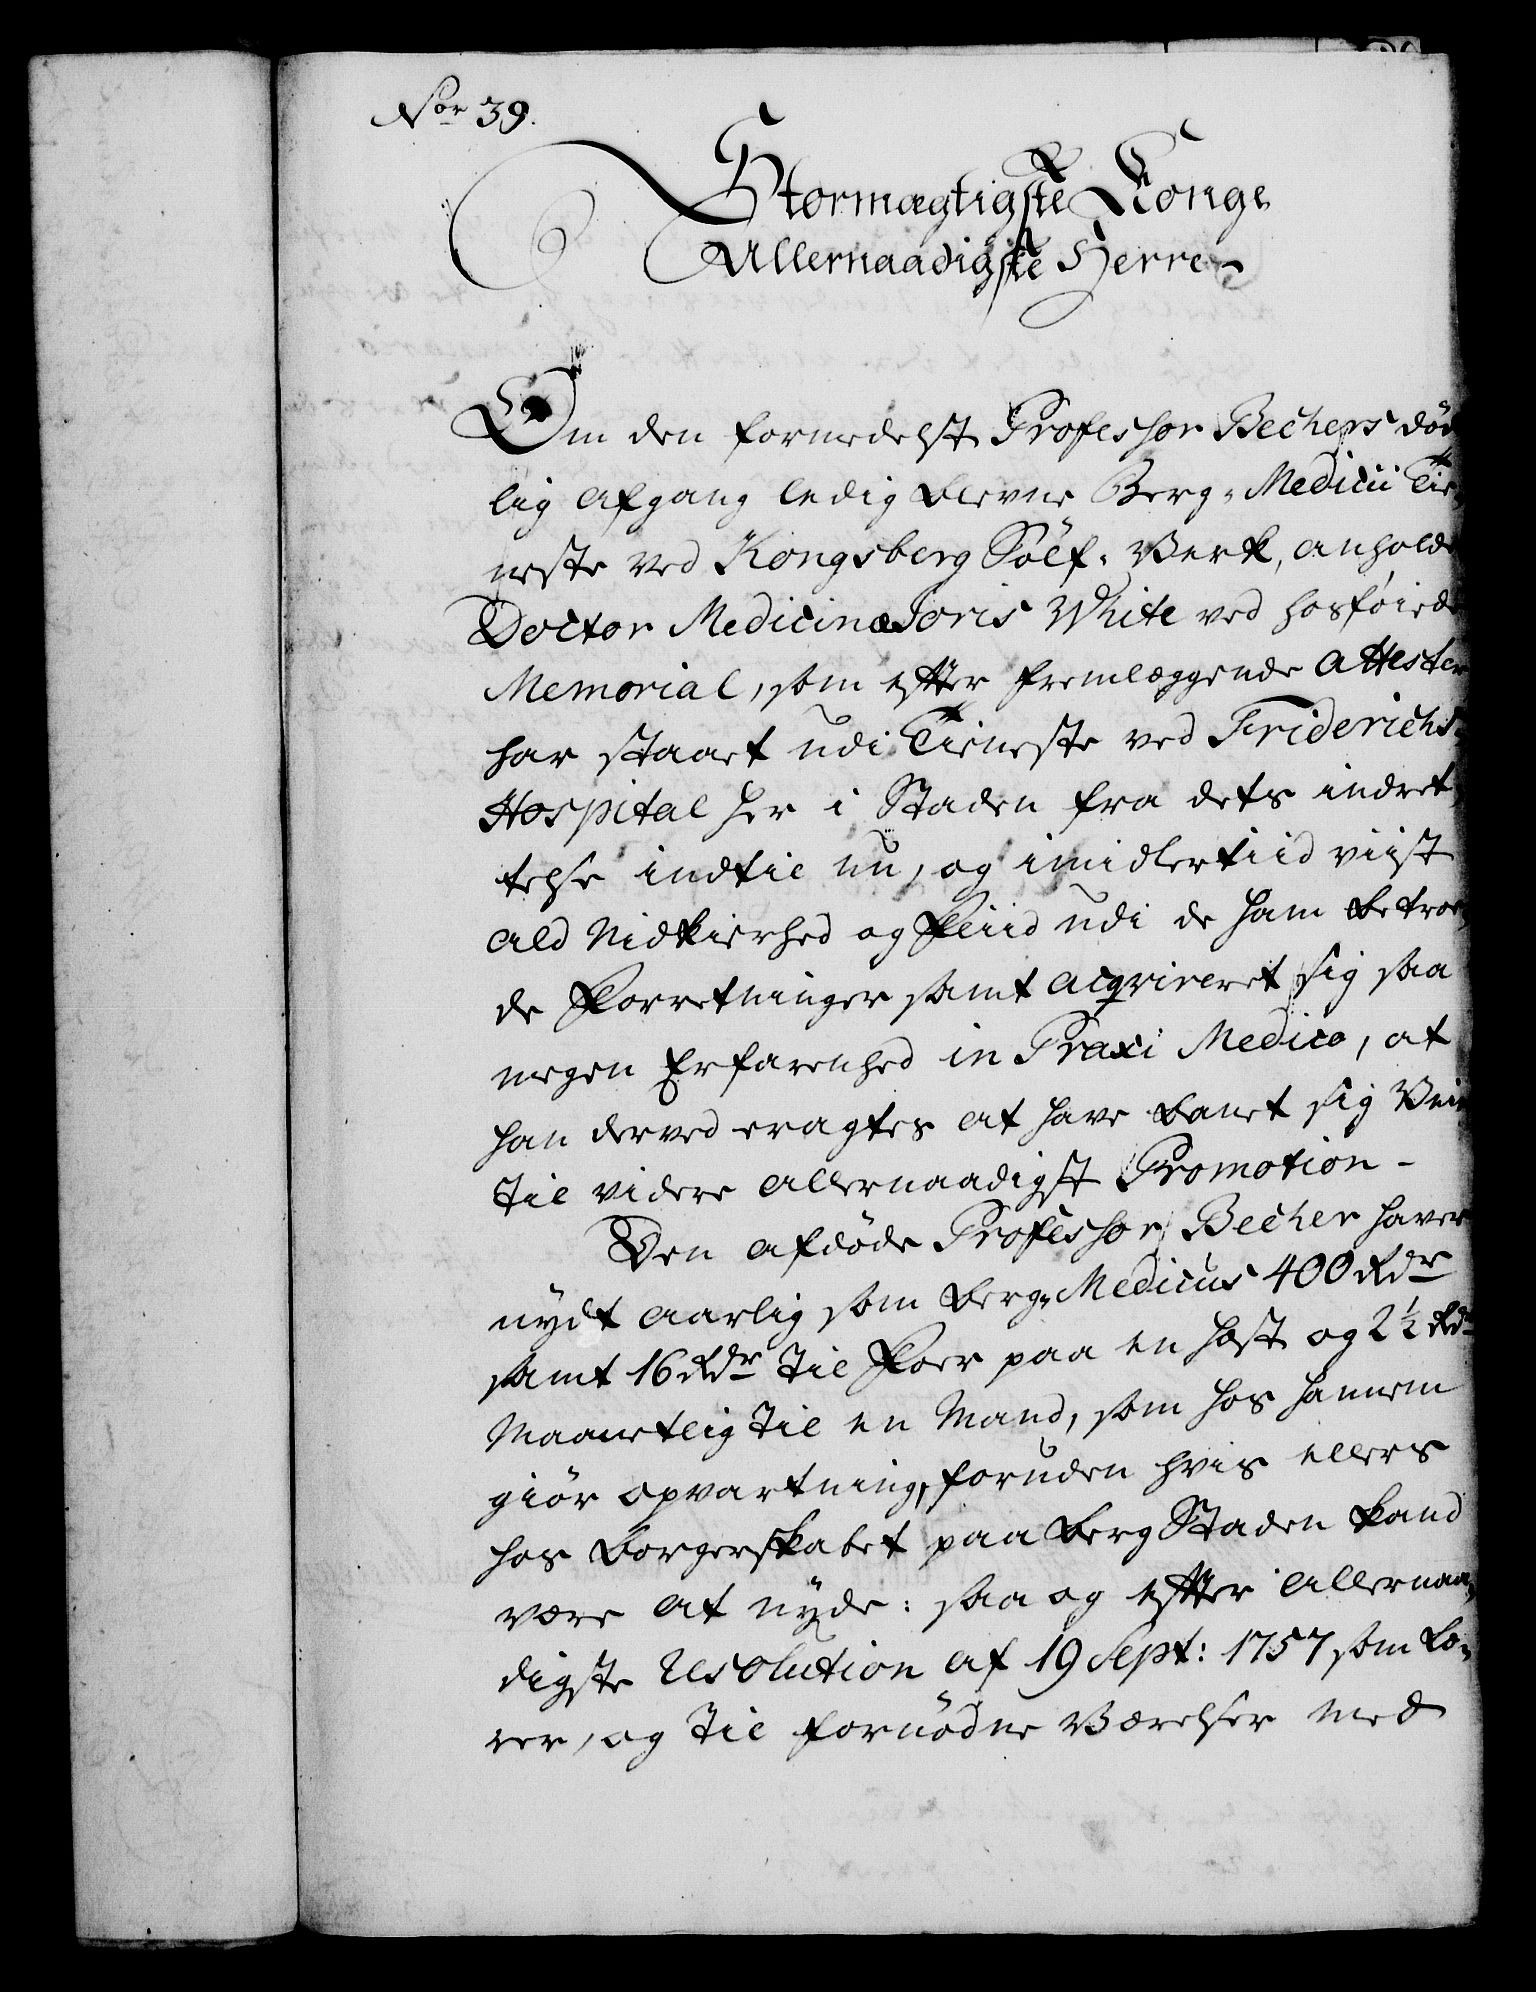 Nor 39.
Stormægtigste Konge
Allernaadigste Herre
Om den formedelst Professor Bechers död
lig Afgang ledig blevne Berg-Medici Tie-
neste ved Kongsberg Sölf-Verk, anholder
Doctor Medicinæ Joris White ved hosföiede
Memorial, som efter fremlæggende Attester
har staaet udi Tieneste ved Friderichs-
Hospital her i Staden fra dets indret-
telse indtil nu, og imidlertiid viist
ald Nidkierhed og Fliid udi de ham betroe-
de Forretninger samt acqvireret sig saa
megen Erfarenhed in Praxi Medico, at
han derved eragtes at have banet sig Vei
til videre allernaadigst Promotion-
Den afdöde Professor Becher haver
nydt aarlig som Berg-Medicus 400 Rdr
samt 16 Rdr til Foer paa en Hest og 2½ Rdr
Maanetlig til en Mand, som hos hannem
giör opvartning, foruden hvis ellers
hos Borgerskabet paa Berg Staden kand
være at nyde: saa og efter allernaa-
digste Resolution af 19 Sept: 1757 som Læ-
rer, og til fornödne Værelser med